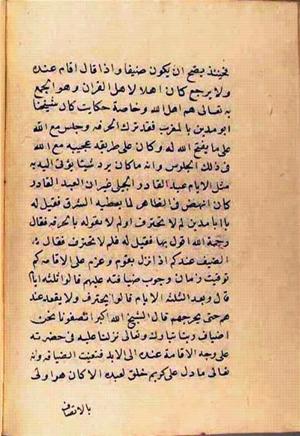 فحينئذ يصح ان يكون ضيفا واذا قال اقام عنده
ولا يرجع كان اهلا لاهل القران وهو الجمع
به تعالى هم اهل الله وخاصة حكايت كان شيخنا
ابو مدين بالمغرب قد ترك الحرفه وجلس مع الله
على ما يفتح الله له وكان على طريقه عجيبه مع الله
فى ذلك الجلوس وانه ما كان يرد شيئا يؤتى اليه به
مثل الامام عبد القادر الجيلى غير ان العبد القادر
كان انهض فى الظاهر لما يعطيه الشرق فقيل له
يا ابا مدين لم لا تحترف او لم لا تقول بالحرفه فقال
رحمة الله اقول بها فقيل له فلم لا تحترف فقال
الضيف عندكم اذا نزل بقوم وعزم على الاقامه
توقيت زمان وجوب ضيافته عليهم قالوا ثلثه ايام
قال وبعد الثلثه الايام قالوا يحترف ولا يقعد عند
هم حتى يحرجهم قال الشيخ الله اكبر انصفونا نحن
اضياف ربنا تبارك وتعالى نزلنا عليه فى حضرته
على وجه الاقامة عنده الى الابد فتعينت الضيافه وانه
تعالى ما دل على كريم خلق لعبده الا كان هو اولى
بالاتصاف